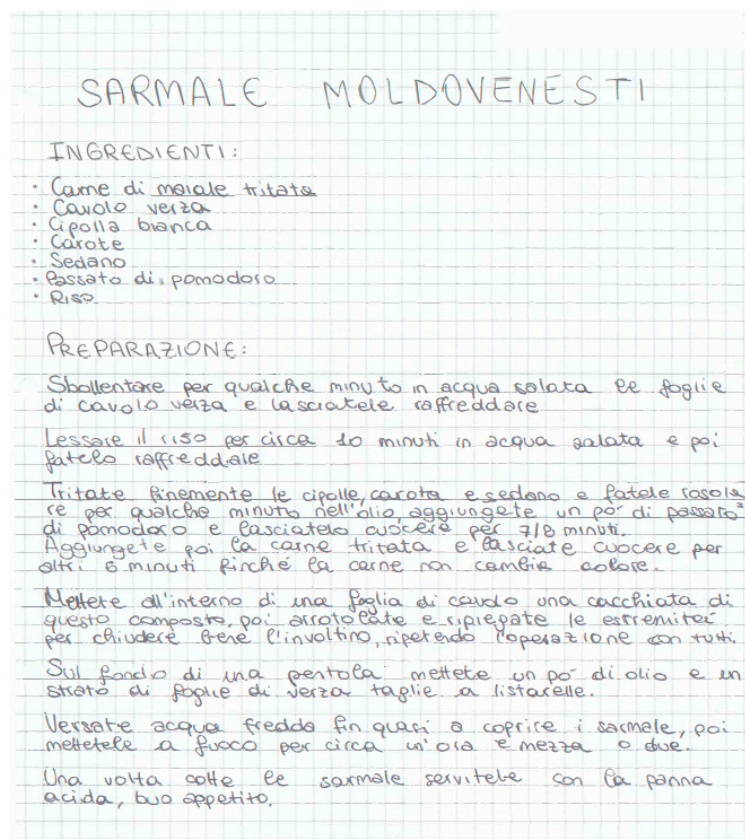 SARMALE MOLDOVENESTI
INGREDIENTI:
· Carne di maiale tritata
· Cavolo verza
· Cipolla bianca
· Carote
· Sedano
· Passato di pomodoro
· Riso
PREPARAZIONE:
Sbollentare per qualche minuto in acqua salata le foglie
di cavolo verza e lasciatele raffreddare
Lessare il riso per circa 10 minuti in acqua salata e poi
fatelo raffreddare
Tritate finemente le cipolle, carota e sedano e fatele rosola
re per qualche minuto nell'olio, aggiungete un po' di passato
di pomodoro e lasciatelo cuocere per 7/8 minuti.
Aggiungete poi la carne tritata e lasciate cuocere per
altri 6 minuti finché la carne non cambia colore.
Mettete all'interno di una foglia di cavolo una cucchiata di
questo composto, poi arrotolate e ripiegate le estremitei
per chiudere bene l'involtino, ripetendo l'operazione con tutti.
Sul fondo di una pentola mettete un po' di olio e un
strato di foglie di verza taglie a listarelle.
Versate acqua fredda fin quasi a coprire i sarmale, poi
mettetele a fuoco per circa un'ora e mezza o due.
Una volta cotte le sarmale servitele con la panna
acida, buo appetito.